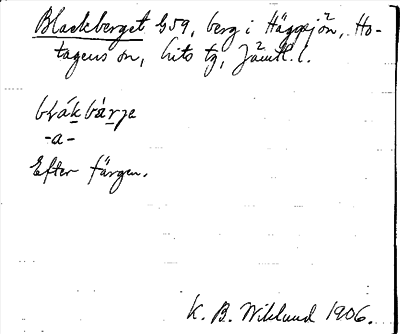 Blackberget G59, berg i Häggsjön, Ho-
tagens sn, Lits tg, Jämtl. l.
blák bárje
-a-
Efter färgen.
K. B. Wiklund 1906.